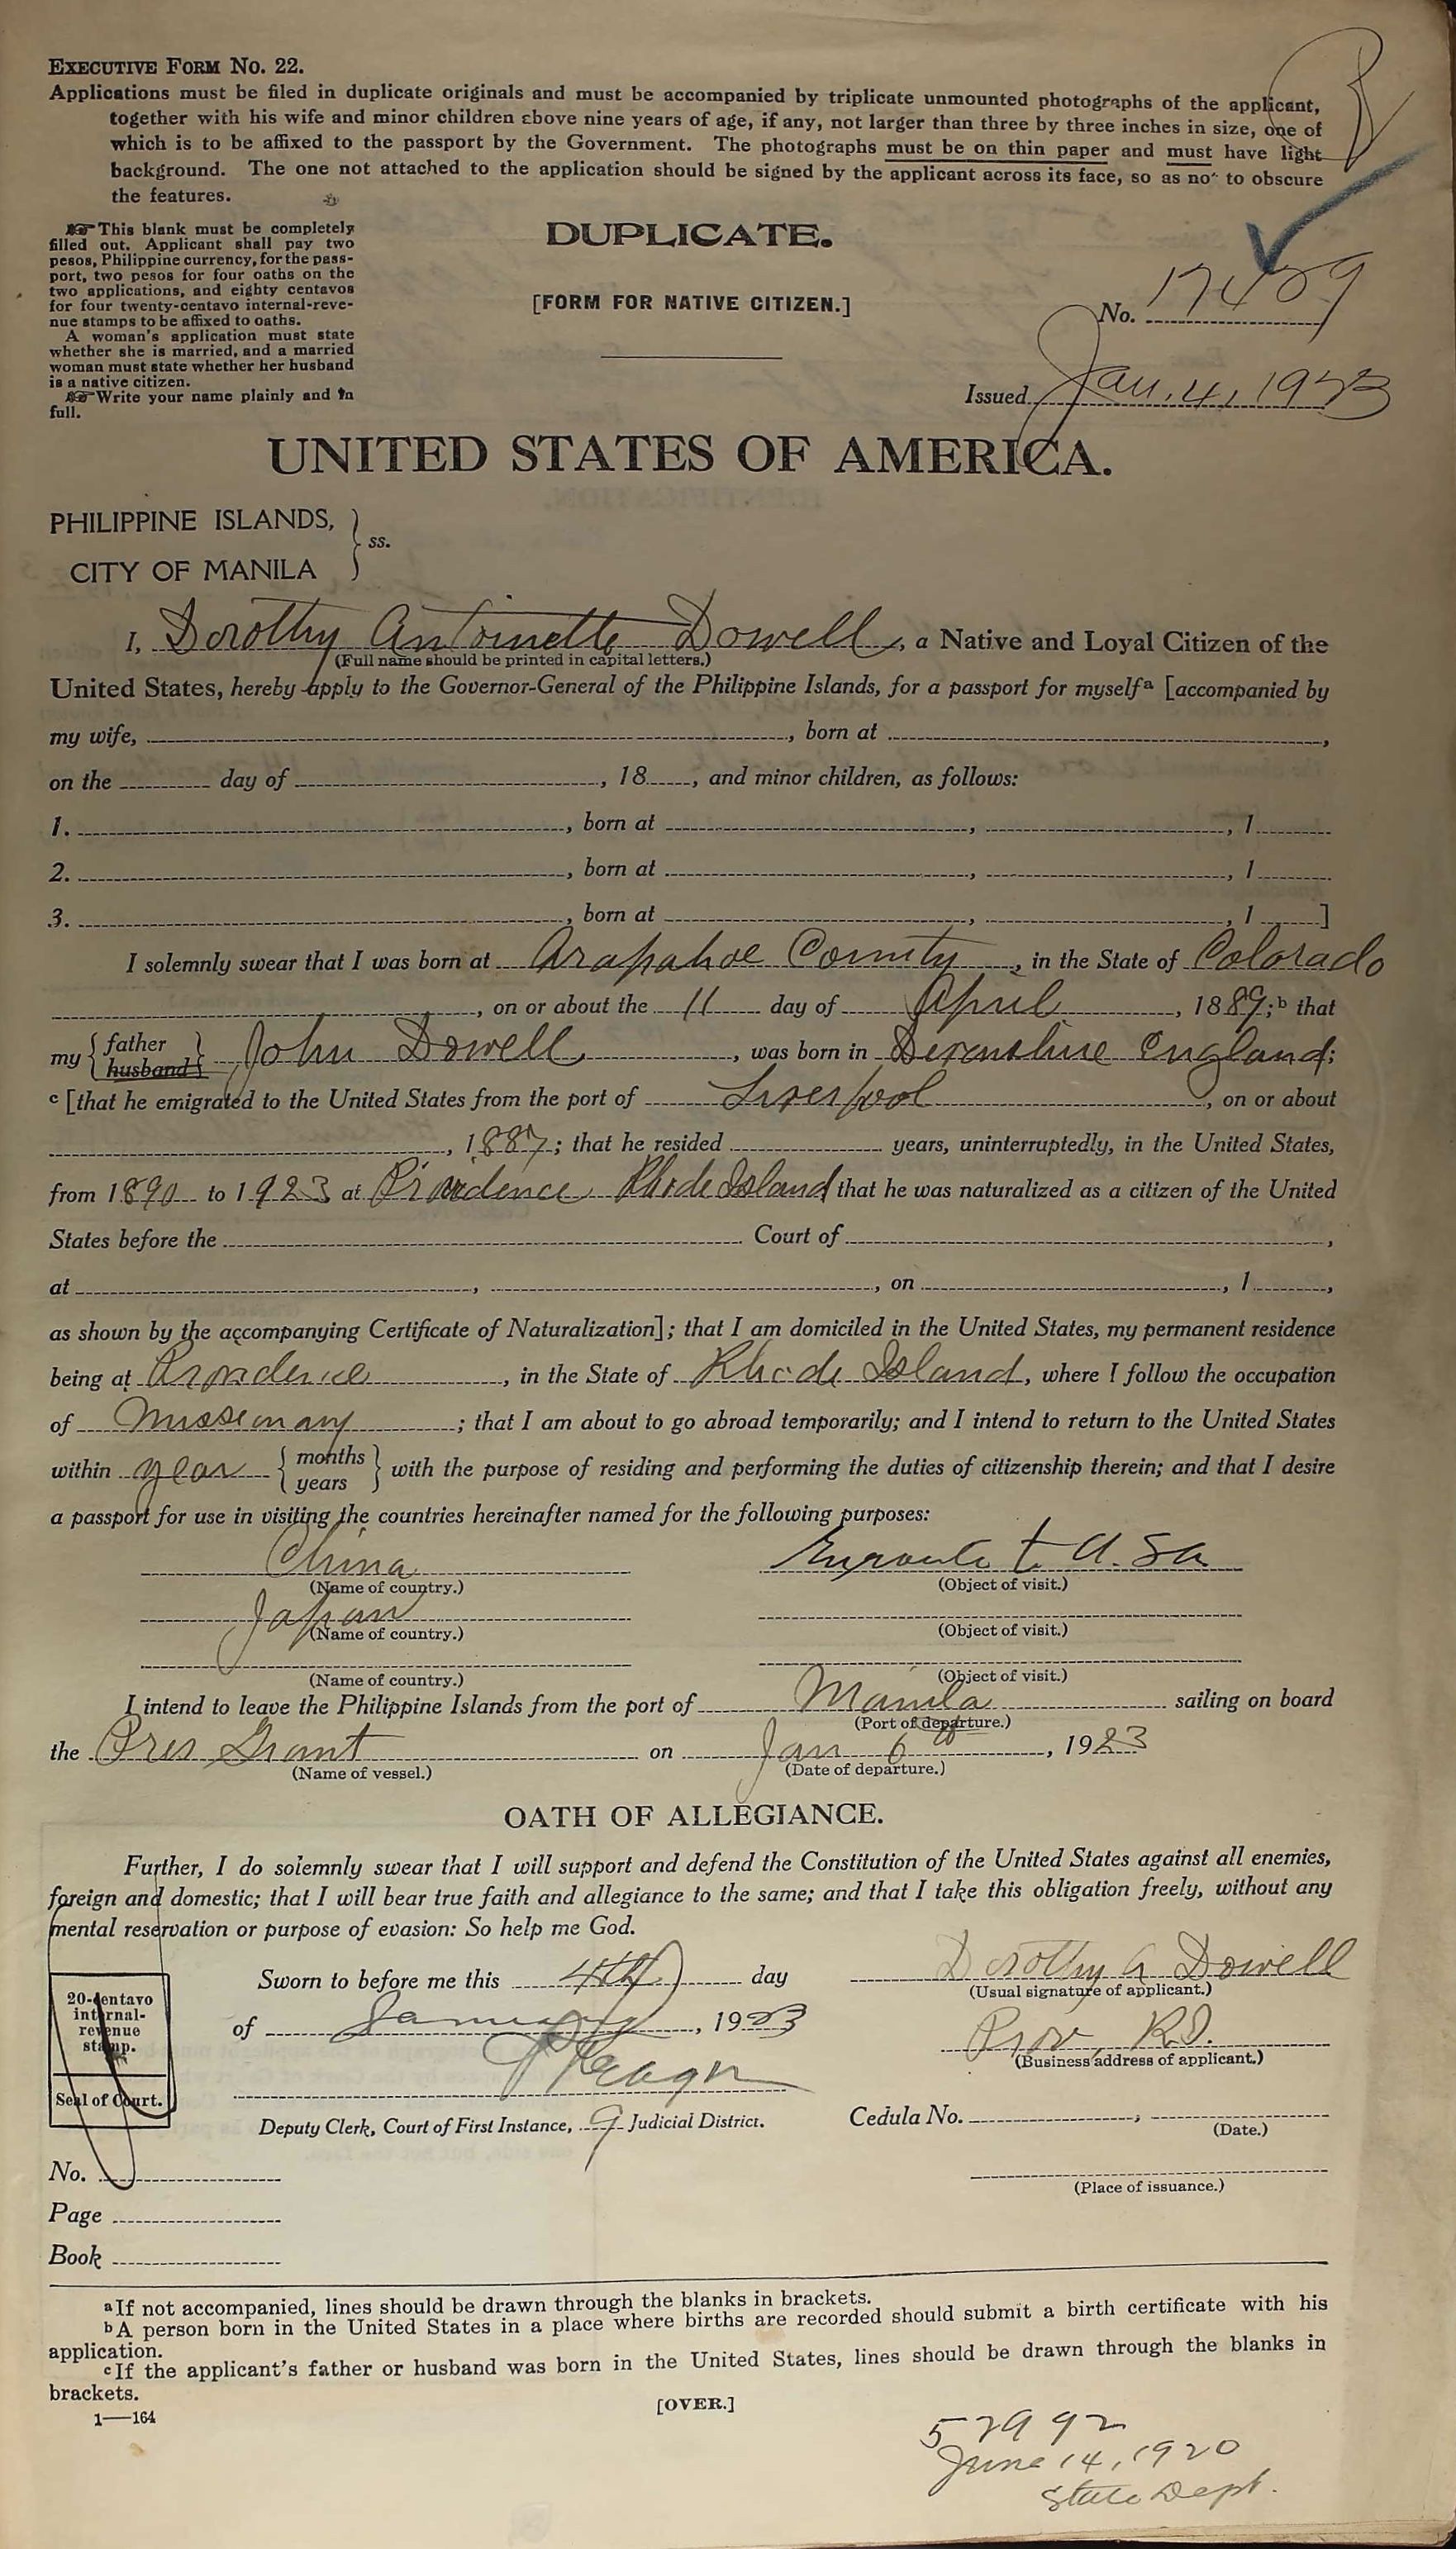 EXECUTIVE FORM No. 22.
Applications must be filed in duplicate originals and must be accompanied by triplicate unmounted photographs of the applicant,
together with his wife and minor children above nine years of age, if any, not larger than three by three inches in size, one of
which is to be affixed to the passport by the Government. The photographs must be on thin paper and must have light
background. The one not attached to the application should be signed by the applicant across its face, so as not to obscure
the features.
☞This blank must be completely
filled out. Applicant shall pay two
pesos, Philippine currency, for the pass-
port, two pesos for four oaths on the
two applications, and eighty centavos
for four twenty-centavo internal-reve-
nue stamps to be affixed to oaths.
A woman's application must state
whether she is married, and a married
woman must state whether her husband
is a native citizen.
☞Write your name plainly and in
full.
DUPLICATE.
[FORM FOR NATIVE CITIZEN.]
No. 17409
Issued Jan. 4, 1923
UNITED STATES OF AMERICA.
PHILIPPINE ISLANDS,
CITY OF MANILA } ss.
I, Dorothy Antoinette Dowell, a Native and Loyal Citizen of the
(Full name should be printed in capital letters.)
United States, hereby apply to the Governor-General of the Philippine Islands, for a passport for myself a [accompanied by
my wife, , born at ,
on the day of , 18 , and minor children, as follows:
1. , born at , , 1
2. , born at , , 1
3. , born at , , 1 ]
I solemnly swear that I was born at Arapahoe County, in the State of Colorado
, on or about the 11 day of April, 1889; b that
my { father husband } John Dowell, was born in Devonshire England;
c [that he emigrated to the United States from the port of Liverpool, on or about
, 1887; that he resided years, uninterruptedly, in the United States,
from 1890 to 1923 at Providence Rhode Island that he was naturalized as a citizen of the United
States before the Court of ,
at , , on , 1 ,
as shown by the accompanying Certificate of Naturalization]; that I am domiciled in the United States, my permanent residence
being at Providence, in the State of Rhode Island, where I follow the occupation
of Missionary; that I am about to go abroad temporarily; and I intend to return to the United States
within year { months years } with the purpose of residing and performing the duties of citizenship therein; and that I desire
a passport for use in visiting the countries hereinafter named for the following purposes:
China Enroute to U.S.A.
(Name of country.) (Object of visit.)
Japan
(Name of country.) (Object of visit.)
(Name of country.) (Object of visit.)
I intend to leave the Philippine Islands from the port of Manila sailing on board
(Port of departure.)
the Pres Grant on Jan 6th, 1923
(Name of vessel.) (Date of departure.)
OATH OF ALLEGIANCE.
Further, I do solemnly swear that I will support and defend the Constitution of the United States against all enemies,
foreign and domestic; that I will bear true faith and allegiance to the same; and that I take this obligation freely, without any
mental reservation or purpose of evasion: So help me God.
20-centavo
internal-
revenue
stamp.
Seal of Court.
Sworn to before me this 4th day
of January, 1923
Deputy Clerk, Court of First Instance, 9 Judicial District.
Dorothy A Dowell
(Usual signature of applicant.)
Prov, R.I.
(Business address of applicant.)
Cedula No. ,
(Date.)
(Place of issuance.)
No.
Page
Book
a If not accompanied, lines should be drawn through the blanks in brackets.
b A person born in the United States in a place where births are recorded should submit a birth certificate with his
application.
c If the applicant's father or husband was born in the United States, lines should be drawn through the blanks in
brackets.
[OVER.]
1—164
57992
June 14, 1920
State Dept.